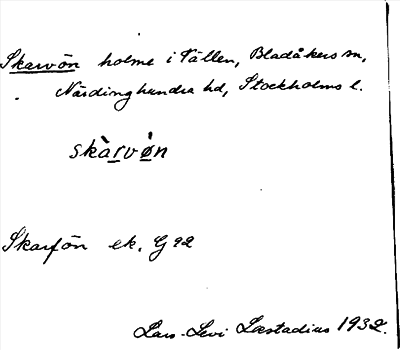 Skarvön holme i Fällen, Bladåkers sn,
Närdinghundra hd, Stockholms l.
skàrvø̀n
Skarfön ek. G 92
Lars-Levi Læstadius 1932.